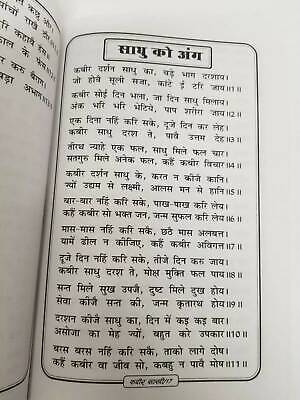 साधु को अंग
कबीर दर्शन साधु का, बड़े भाग दरशाय।
जो होवै सूली सजा, काटे ई टरि जाय॥1॥
कबीर सोई दिन भला, जा दिन साधु मिलाय
अंक भरि भरि भेटिये, पाप शरीर जाय॥2॥
एक दिना नहिं करि सकै, दूजे दिन कर लेह।
कबीर साधु दरश ते, पावै उत्तम देह॥3॥
तीरथ न्हाये एक फल, साधु मिले फल चार।
सतगुरु मिले अनेक फल, कहैं कबीर विचार॥4॥
कबीर दर्शन साधु के, करत न कीजै कानि।
ज्यों उद्यम से लक्ष्मी, आलस मन से हानि॥5॥
बार-बार नहिं करि सकै, पाख-पाख करि लेय।
कहैं कबीर सो भक्त जन, जन्म सुफल करि लेय॥6॥
मास-मास नहिं करि सकै, छठै मास अलबत्त।
यामें ढील न कीजिए, कहैं कबीर अविगत्त॥7॥
दूजे दिन नहिं करि सकै, तीजे दिन करू जाय।
कबीर साधु दरश ते, मोक्ष मुक्ति फल पाय॥8॥
सन्त मिले सुख उपजै, दुष्ट मिले दुख होय।
सेवा कीजै सन्त की, जन्म कृतारथ होय॥9॥
दरशन कीजै साधु का, दिन में कइ कइ बार।
असोजा का मेह ज्यों, बहुत करे उपकार॥10॥
बरस बरस नहिं करि सकै, ताको लागे दोष।
कहैं कबीर वा जीव सो, कबहु न पावै मोष॥11॥
कबीर साखी/17